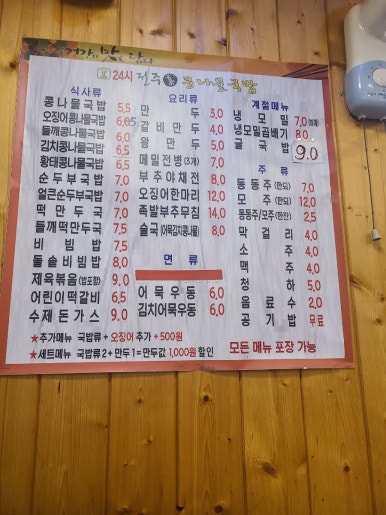 24시 전주 콩나물국밥
식사류
콩나물국밥 5,5
오징어콩나물국밥 6,0
들깨콩나물국밥 6,5
김치콩나물국밥 6,5
황태콩나물국밥 7,0
순두부국밥 7,0
얼큰순두부국밥 7,0
떡만두국 7,0
들깨떡만두국 7,5
비빔밥 7,5
돌솥비빔밥 8,0
제육볶음(밥포함) 9.0
어린이떡갈비 6,5
수제돈가스 9.0
요리류
만두 3,0
갈비만두 4,0
왕만두 5,0
메밀전병(3개) 7,0
부추야채전 8,0
오징어한마리 12,0
족발부추무침 14,0
술국(어묵김치콩나물) 8,0
면류
어묵우동 6,0
김치어묵우동 6,0
계절메뉴
냉모밀 7,0
냉모밀곱배기 8,0
굴국밥 9.0
주류
동동주(반되) 7,0
모주(반되) 12,0
동동주/모주(한잔) 2,5
막걸리 4,0
소주 4,0
맥주 4,0
청하 5,0
음료수 2,0
공기밥 무료
★추가메뉴 국밥류 + 오징어 추가 + 500원
★세트메뉴 국밥류2 + 만두1 = 만두값 1,000원 할인
모든 메뉴 포장 가능